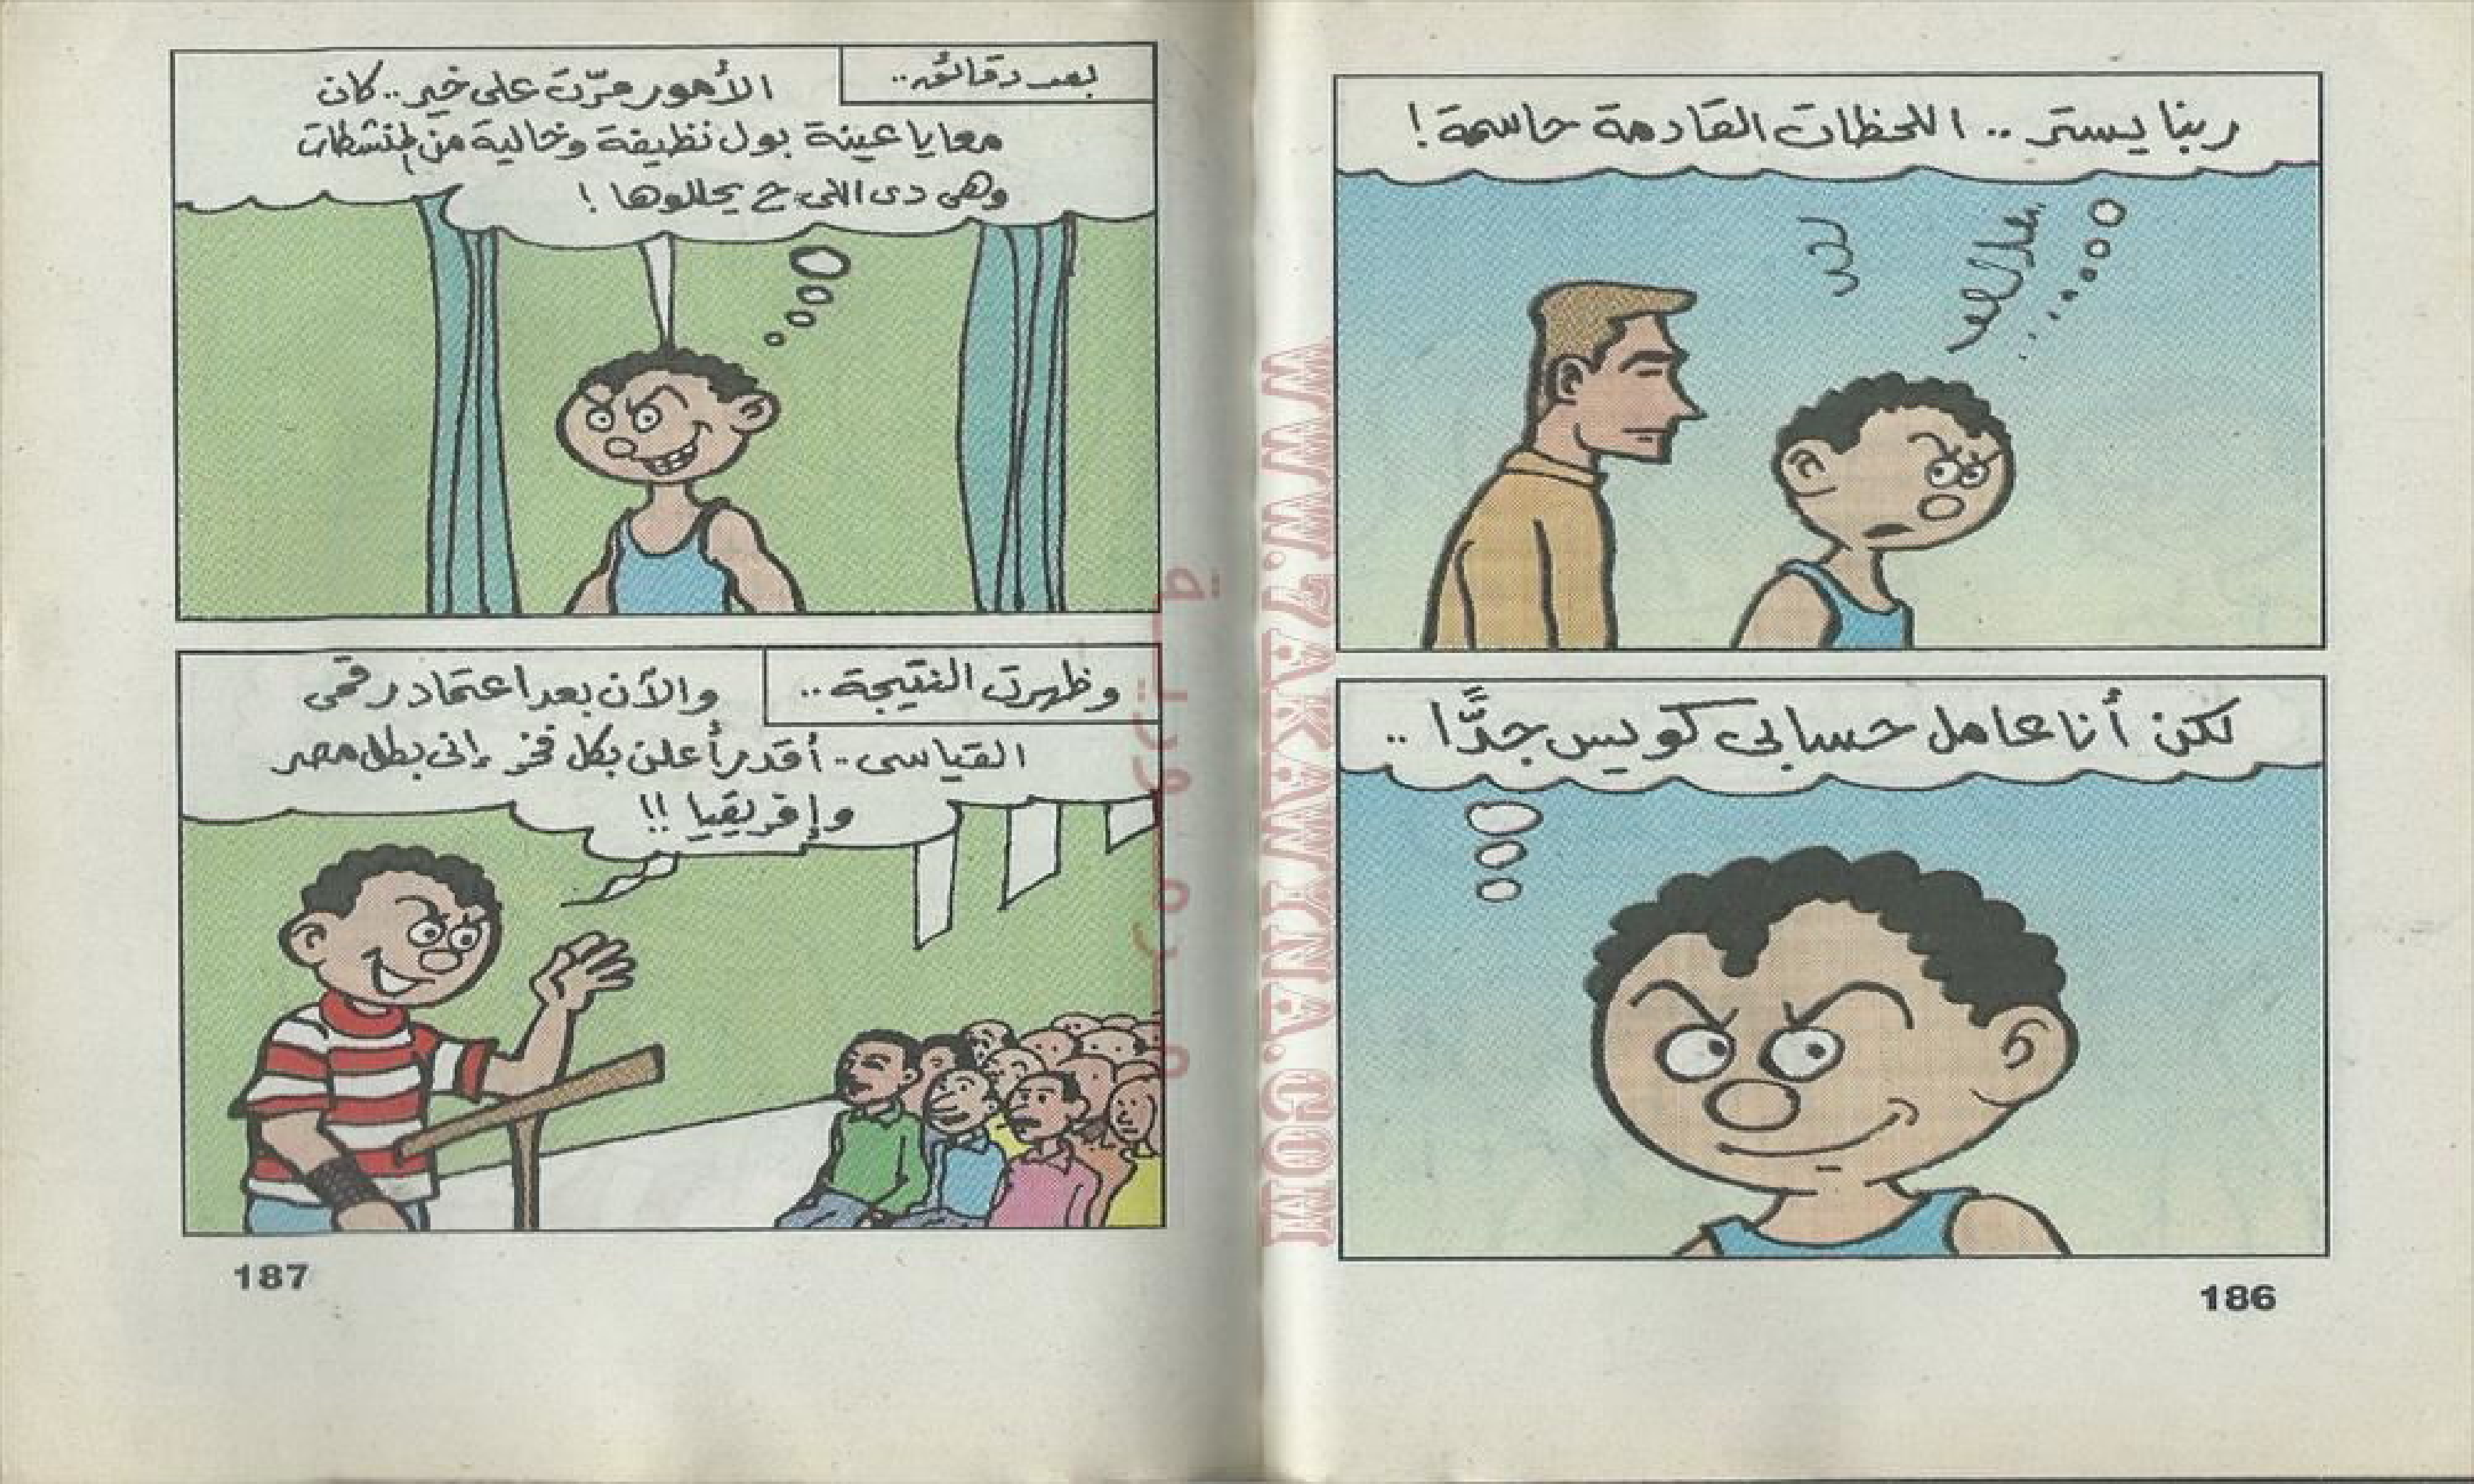 ربنا يستر .. اللحظات القادمة حاسمة !
لكن أنا عامل حسابى كويس جدًّا ..
186
بعد دقائق ..
الأمور مرّت على خير .. كان
معايا عينة بول نظيفة وخالية من المنشطات
وهى دى اللى ح يحللوها !
وظهرت النتيجة ..
والآن بعد اعتماد رقمى
القياسى .. أقدر أعلن بكل فخر إنى بطل مصر
وإفريقيا !!
187
WWW.7AKAWINA.COM